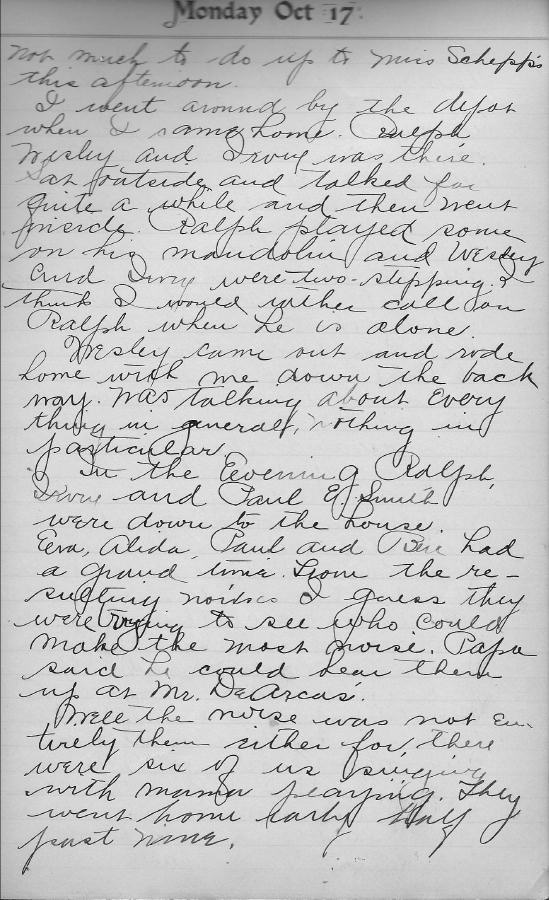 Monday Oct 17.
Not much to do up to Miss Schepp's
this afternoon.
I went around by the depot
when I came home. Ralph
Wesley and Irving was there.
Sat outside and talked for
quite a while and then went
inside. Ralph played some
on his mandolin and Wesley
and Irving were two-stepping. I
think I would rather call on
Ralph when he is alone.
Wesley came out and rode
home with me down the back
way. Was talking about every
thing in general, nothing in
particular.
In the Evening Ralph,
Irving and Paul E. Smith
were down to the house.
Eva, Alida, Paul and had
a grand time. From the re-
sulting noises I guess they
were trying to see who could
make the most noise. Papa
said he could hear them
up at Mr. DeArcas'.
Well the noise was not en-
tirely them either for, there
were six of us singing
with mama playing. They
went home early Half
past nine.